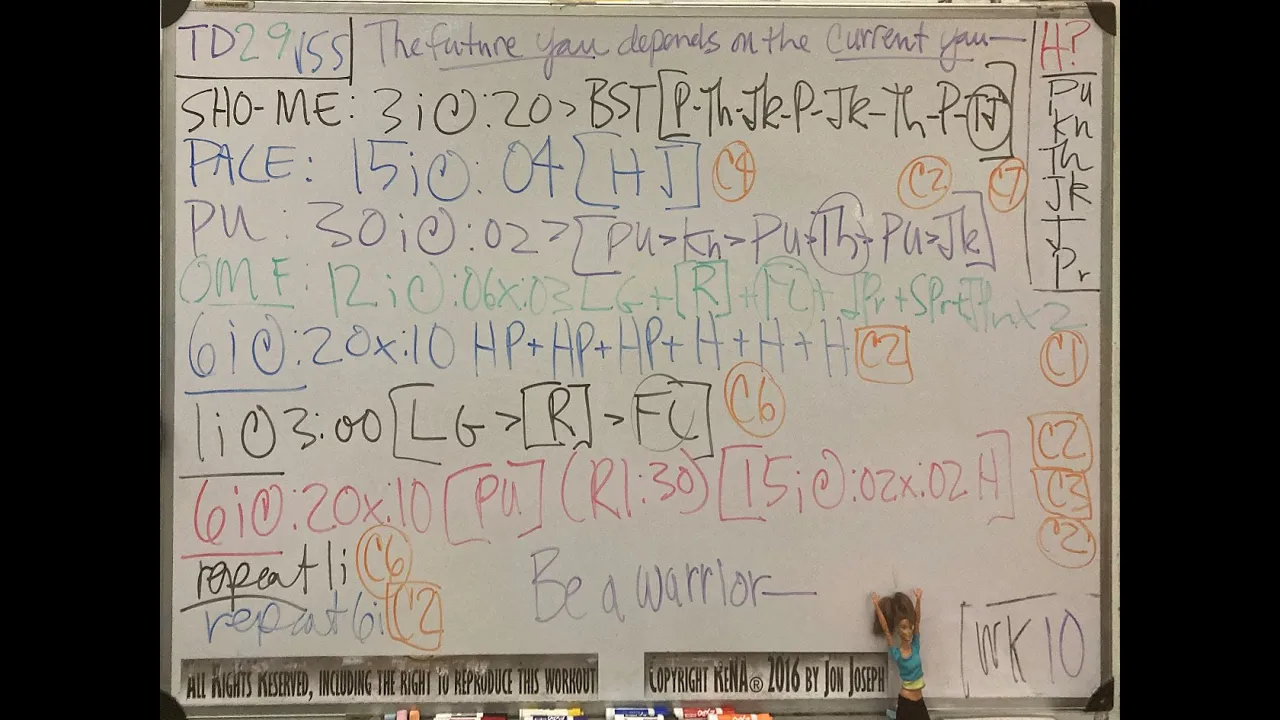 TD29/55 The future you depends on the current you— H?
SHO-ME: 3i@:20>BST[P-Th-Jk-P-Jk-Th-P-TJ]
Pu
Kn
Th
Jk
T
Pr
PACE: 15i@:04[HJ] C4 C2 C7
PU: 30i@:02>[PU>Kn>PU+Th+PU>Jk]
OMF: 12i@:06x:03 LG+[R]+FC+JPr+SPr+ x2
6i@:20x:10 HP+HP+HP+H+H+H C2 C1
1i@3:00[LG>[R]>FC] C6
C2
6i@:20x:10[PU](R1:30)[15i@:02x:02H] C3
C2
repeat 1i C6
repeat 6i C2
Be a warrior—
WK10
ALL RIGHTS RESERVED, INCLUDING THE RIGHT TO REPRODUCE THIS WORKOUT COPYRIGHT ReNA® 2016 BY JON JOSEPH